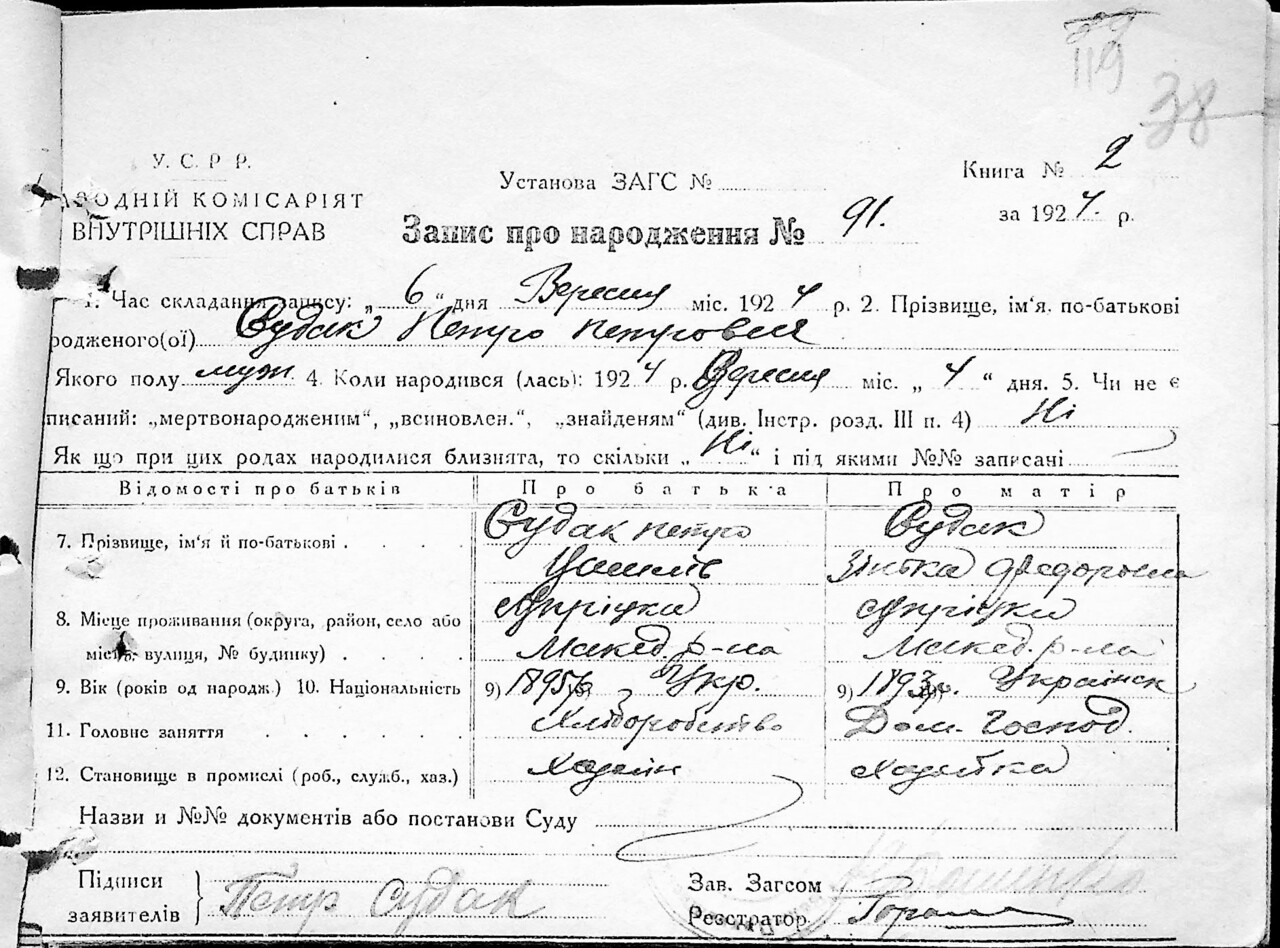 119
38
У. С. Р Р.
Книга № 2
Установа ЗАГС №
АРОДНІЙ КОМІСАРІЯТ
за 1924 р.
ВНУТРІШНІХ СПРАВ
Запис про народження № 91.
1. Час складання запису: „ 6 “ дня Вересня міс. 1924 р. 2. Прізвище, ім'я. по-батькові
родженого(ої) Судак Петро Петрович
Якого полу муж 4. Коли народився (лась): 1924 р. Вересня міс. „ 4 “ дня. 5. Чи не є
писаний: „мертвонародженим“, „всиновлен.“, „знайденям“ (див. Інстр. розд. III п. 4) Ні
Як що при цих родах народилися близнята, то скільки „ Ні “ і під якими №№ записані
Відомості про батьків Про батька Про матір
7. Прізвище, ім'я й по-батькові . . . . Судак Петро Судак
Зінька Федоровна
8. Місце проживання (округа, район, село або
місто, вулиця, № будинку) . . . . Макед. р-на Макед. р-на
9. Вік (років од народж.) 10. Національність 9) 1895 Укр. 9) 1893 Українск
11. Головне заняття . . . . . . Хліборобство Дом. Господ.
12. Становище в промислі (роб., служб., хаз.) Хазяїн Хазяйка
Назви и №№ документів або постанови Суду
Підписи
заявителів } Петр Судак
Зав. Загсом
Реєстратор